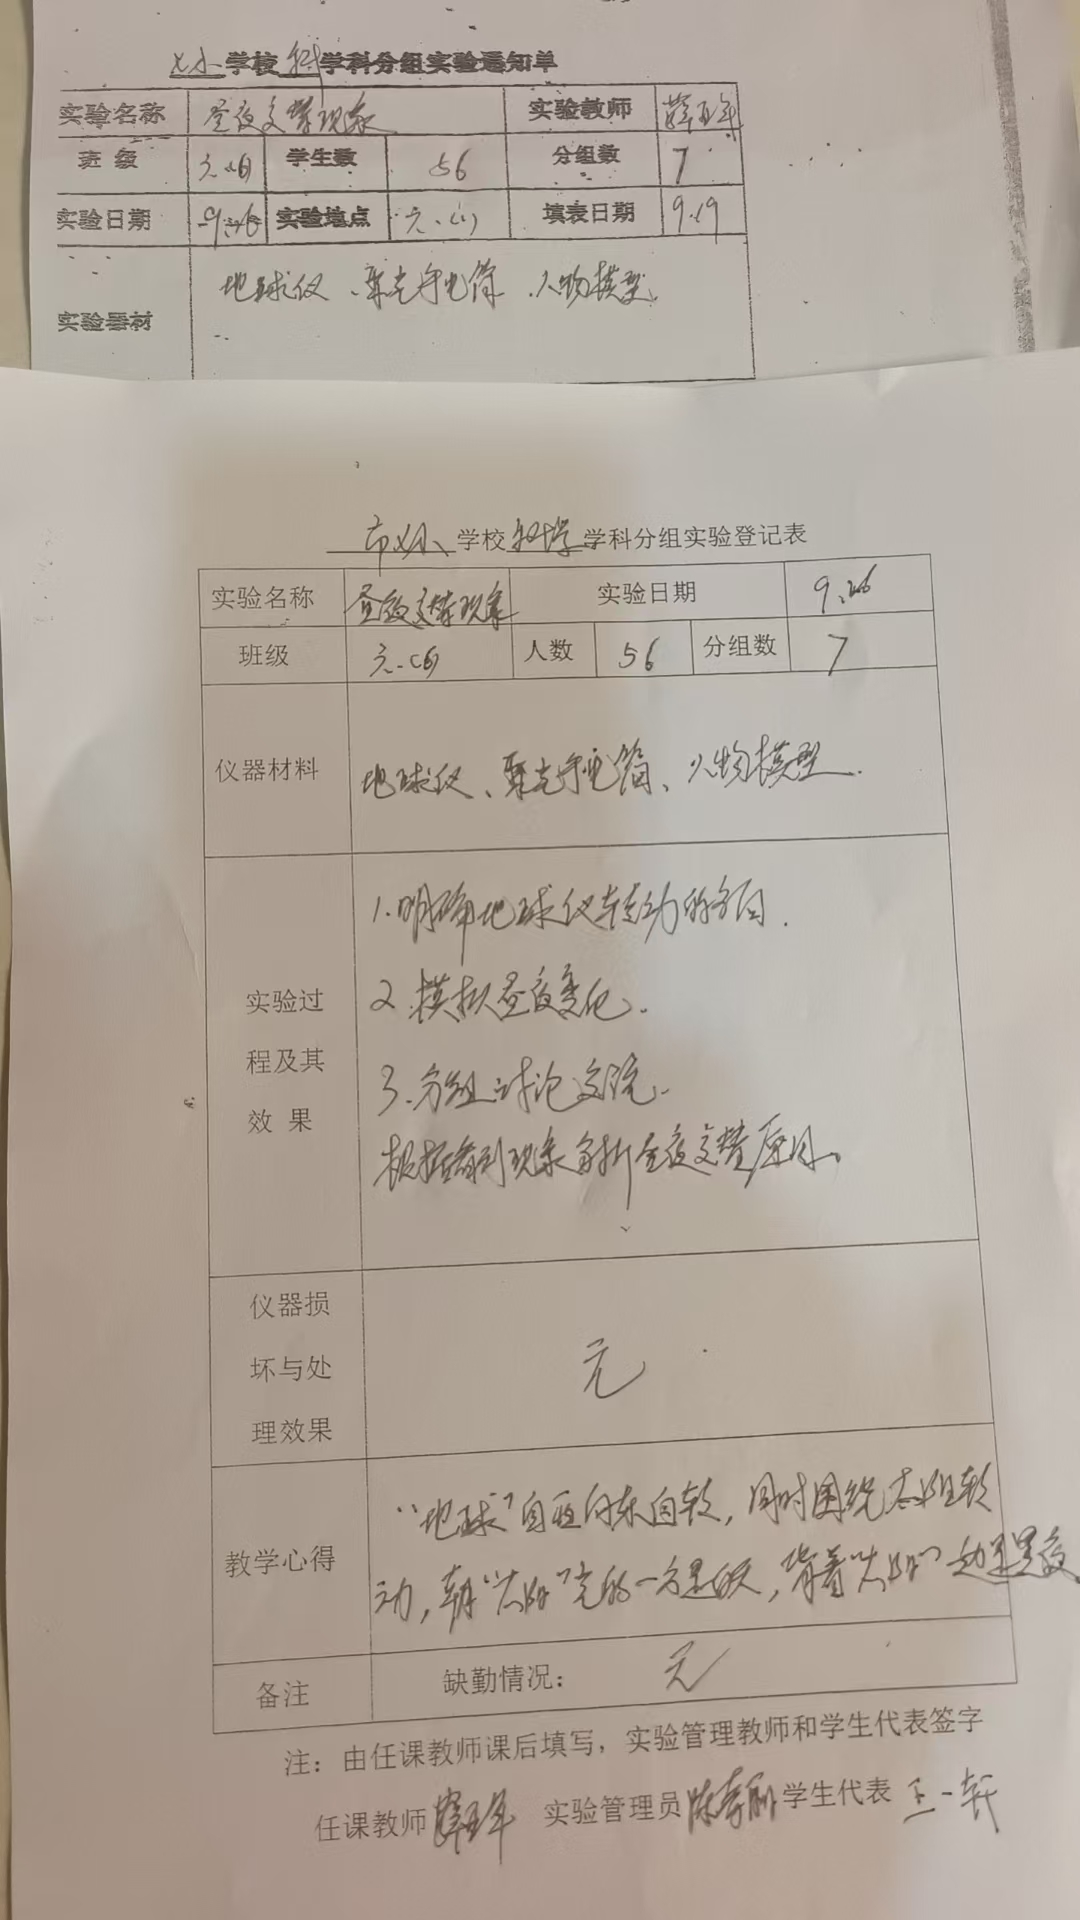 学校 科学科分组实验通知单
实验名称 昼夜交替现象 实验教师
班级 学生数 56 分组数 7
实验日期 9.26 实验地点 填表日期 9.19
实验器材 地球仪、聚光手电筒、人物模型
学校科学学科分组实验登记表
实验名称 昼夜交替现象 实验日期 9.26
班级 人数 56 分组数 7
仪器材料 地球仪、聚光手电筒、人物模型.
实验过
程及其
效 果
1.明确地球仪转动的方向.
2.模拟昼夜变化.
3.分组讨论交流.
根据看到现象分析昼夜交替原因。
仪器损
坏与处
理效果
无
教学心得
“地球”自西向东自转,同时围绕太阳转
动,朝“太阳”光的一方是白天,背着“太阳”一边是黑夜
备注 缺勤情况: 无
注:由任课教师课后填写,实验管理教师和学生代表签字
任课教师 实验管理员 学生代表 王一轩